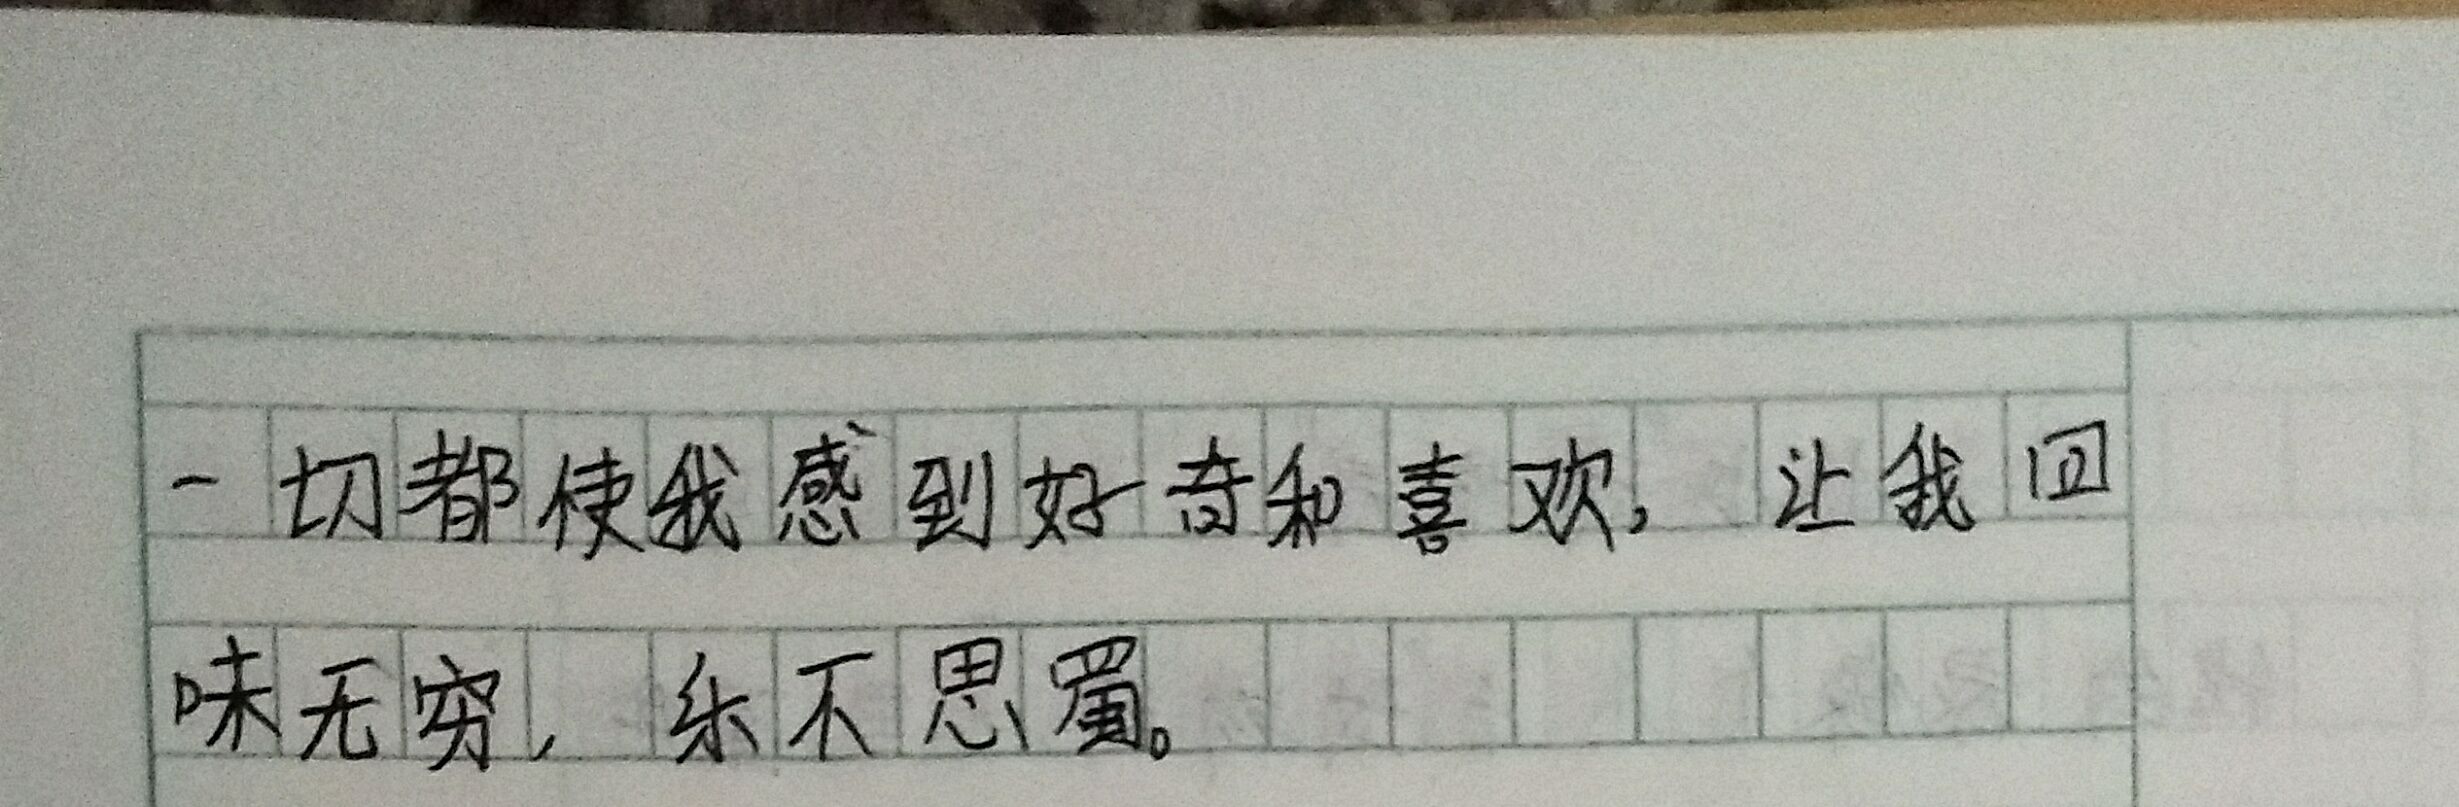 一切都使我感到好奇和喜欢，让我回
味无穷，乐不思蜀。